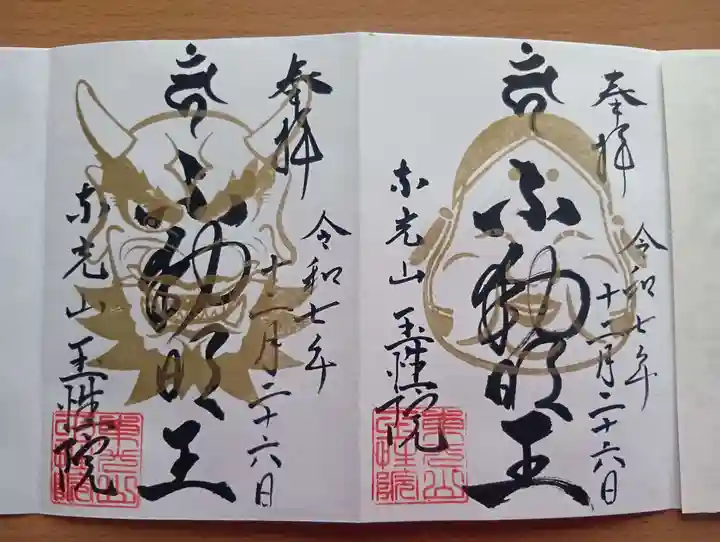 奉拝
令和七年
十二月二十六日
不動明王
東光山
玉性院
奉拝
令和七年
十二月二十六日
不動明王
東光山
玉性院